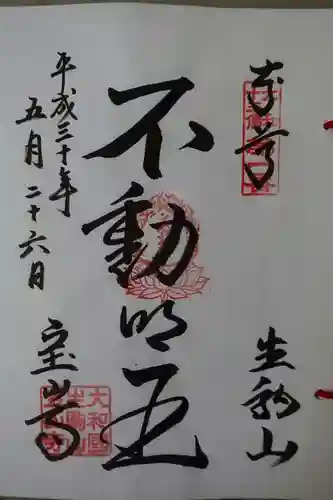 奉拝
生駒山
不動明王
平成三十年
五月二十六日
宝山寺